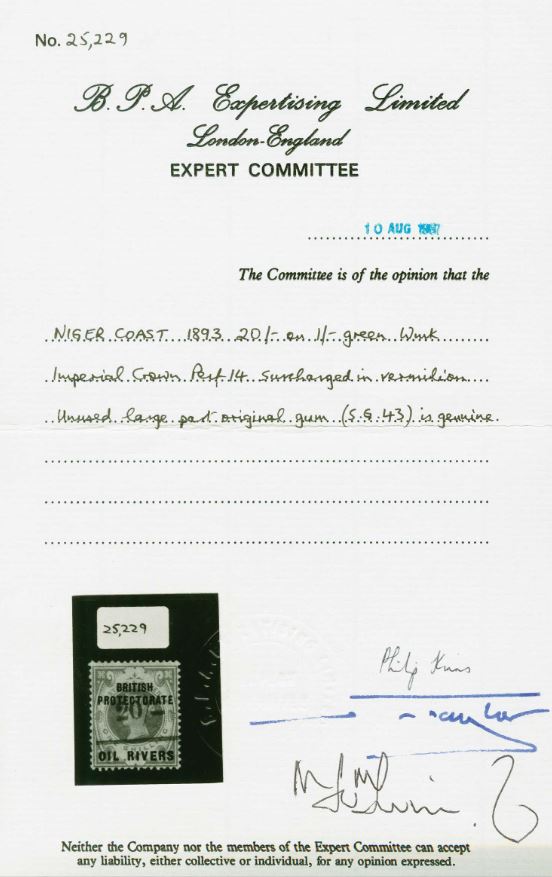 No. 25,229
B. P. A. Expertising Limited
London-England
EXPERT COMMITTEE
10 AUG
The Committee is of the opinion that the
NIGER COAST 1893 20/- on 1/- green Wmk
Imperial Crown Perf 14 surcharged in vermilion
Unused large part original gum (S.G.43) is genuine.
25,229
BRITISH
PROTECTORATE
20/-
OIL RIVERS
Philip
Neither the Company nor the members of the Expert Committee can accept
any liability, either collective or individual, for any opinion expressed.